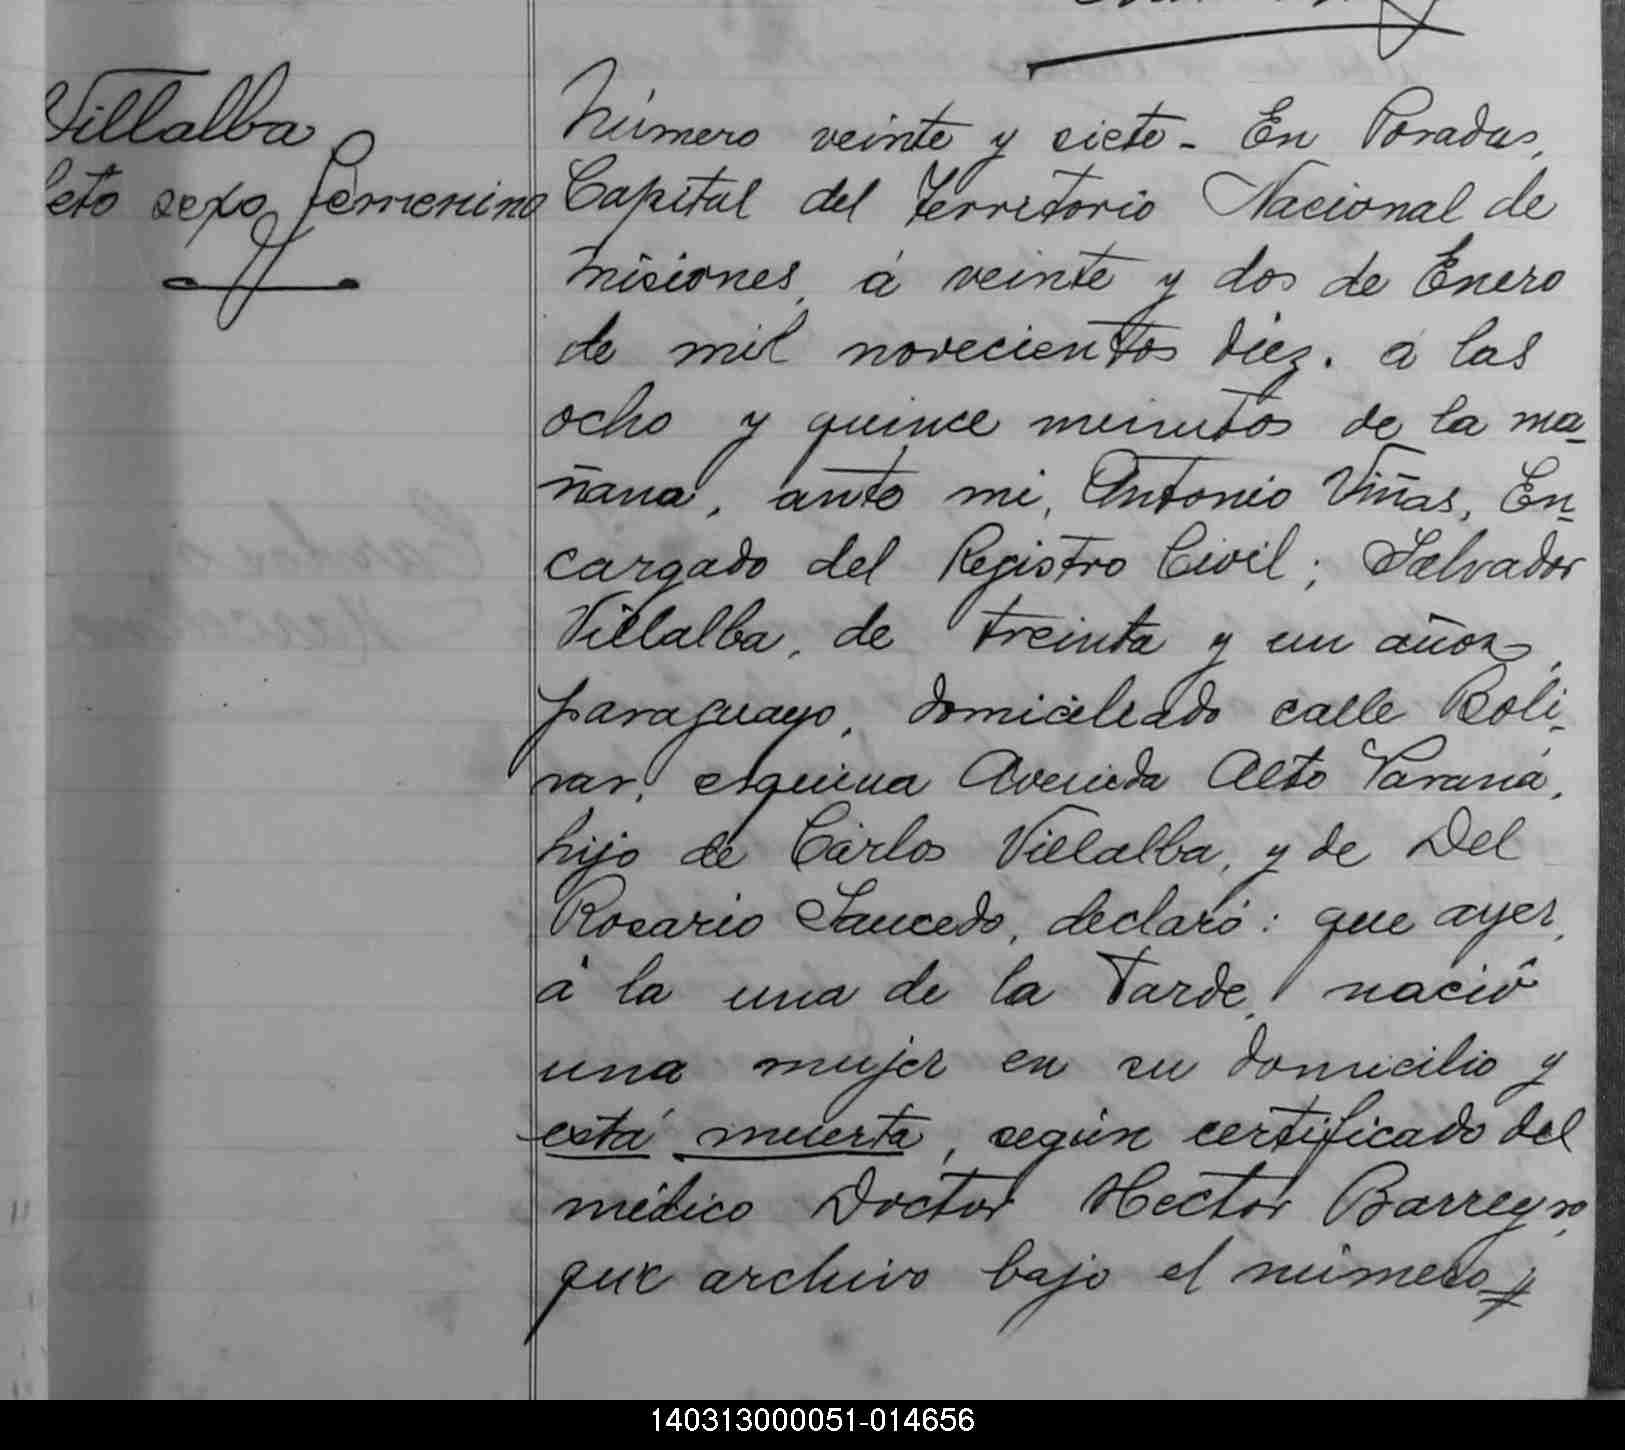 Villalba
feto sexo femenino
Número veinte y siete - En Posadas,
Capital del Territorio Nacional de
Misiones, á veinte y dos de Enero
de mil novecientos diez. á las
ocho y quince minutos de la ma-
ñana, ante mi, Antonio Viñas, En-
cargado del Registro Civil; Salvador
Villalba, de treinta y un años,
paraguayo, domiciliado calle Boli-
var, esquina Avenida Alto Paraná,
hijo de Cárlos Villalba, y de Del
Rosario Saucedo, declaró: que ayer,
á la una de la tarde, nació
una mujer en su domicilio y
está muerta, según certificado del
médico Doctor Hector Barreyro,
que archivo bajo el número
140313000051-014656